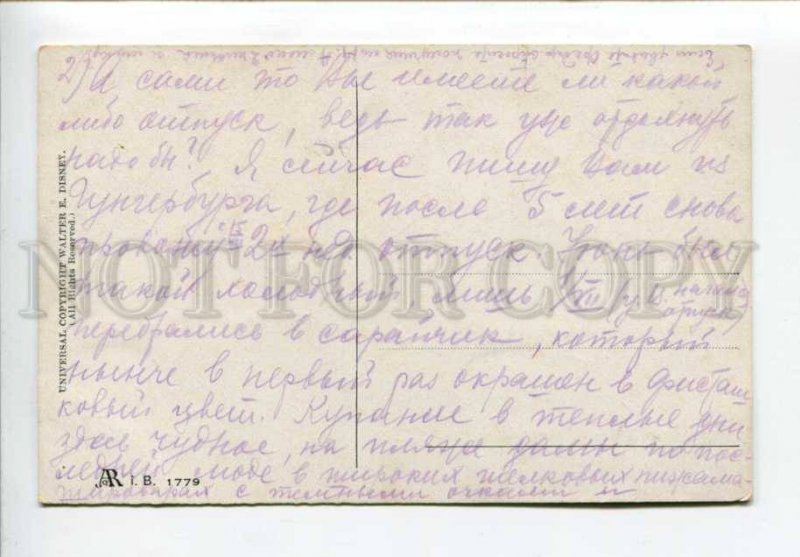 2) А сами то Вы имеете ли какой
либо отпуск, ведь так уж отдохнуть
надо бы? Я сейчас пишу Вам из
Гунгербурга, где после 5 лет снова
провожу 2х нед отпуск. Июнь был
такой холодный, лишь
перебрались в сарайчик, который
нынче в первый раз окрашен в фисташ
ковый цвет. Купание в теплые дни
здесь чудное, на пляже дамы по пос-
ледней моде в широких шелковых пижама-
шароварах с темными очками и
UNIVERSAL COPYRIGHT WALTER E. DISNEY.
(All Rights Reserved.)
AR i. B. 1779
NOT FOR COPY